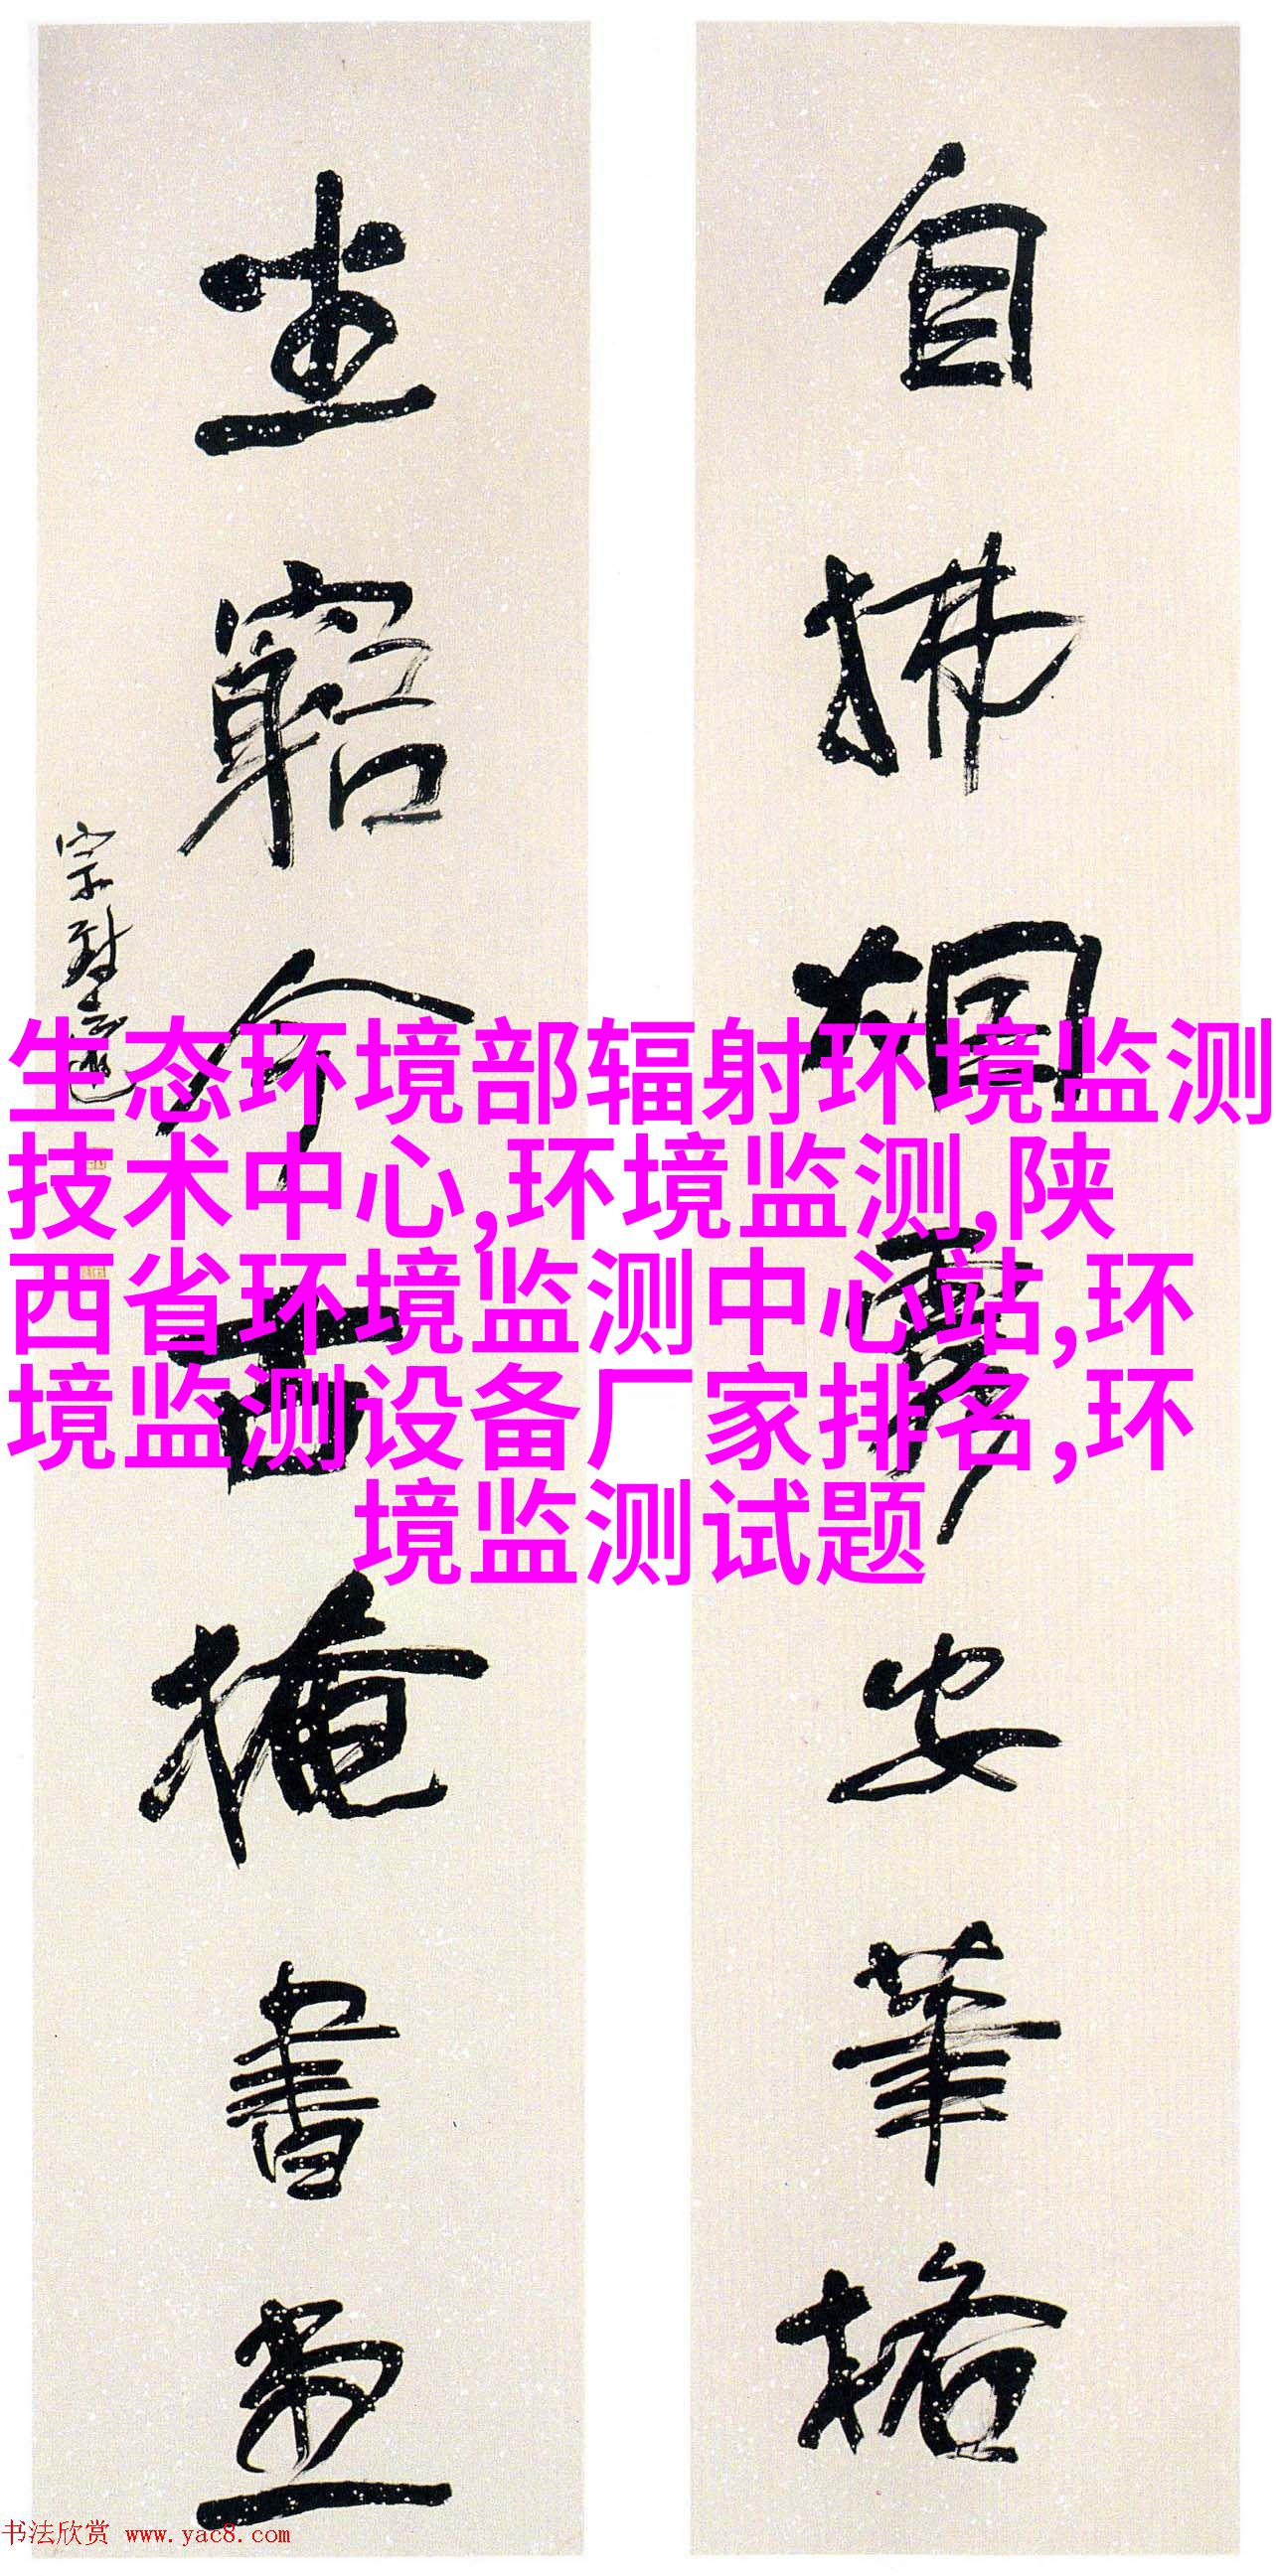 自拂烟霞安笔格
坐穷今古掩书画
生态环境部辐射环境监测
技术中心,环境监测,陕
西省环境监测中心站,环
境监测设备厂家排名,环
境监测试题
书法欣赏 www.yac8.com